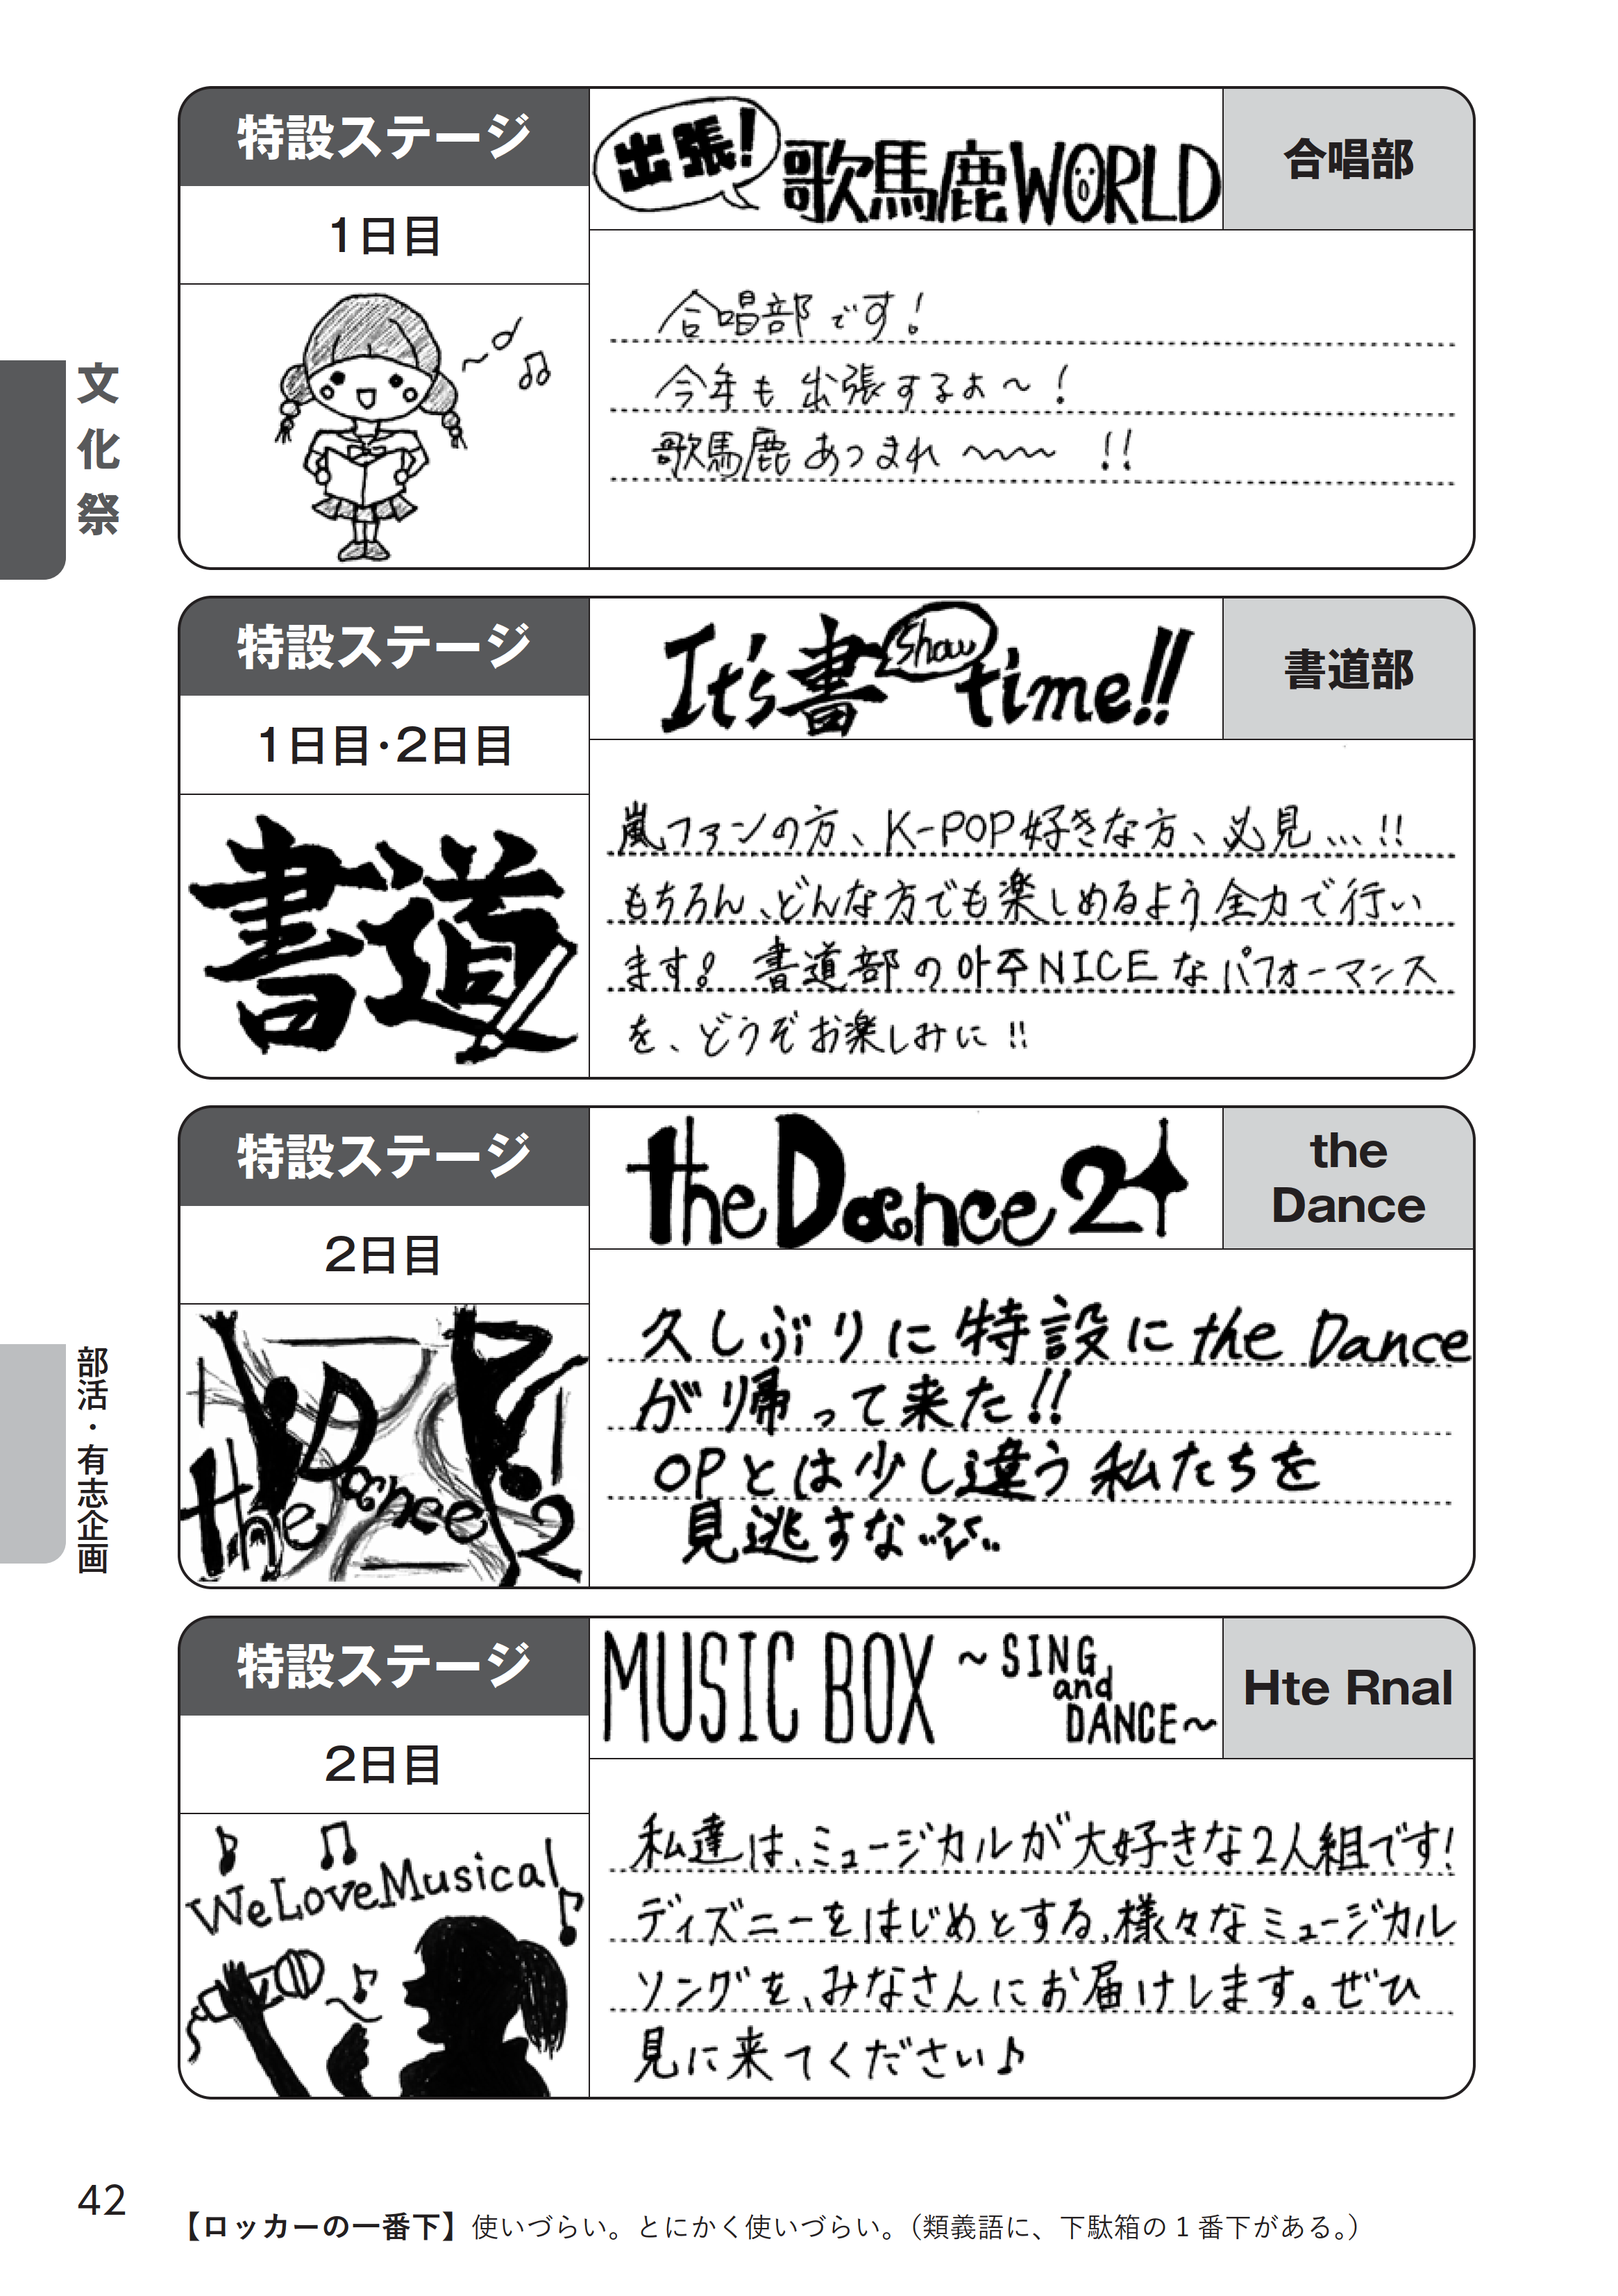 文化祭
部活・有志企画
特設ステージ
1日目
出張!
歌馬鹿WORLD
合唱部
合唱部です!
今年も出張するよ〜!
歌馬鹿あつまれ〜〜〜!!
特設ステージ
1日目・2日目
It's書time!!
Show
書道部
書道
嵐ファンの方、K-POP好きな方、必見…!!
もちろん、どんな方でも楽しめるよう全力で行い
ます! 書道部の아주NICEなパフォーマンス
を、どうぞお楽しみに!!
特設ステージ
2日目
the Dance 2
the
Dance
the Dance 2
久しぶりに特設にthe Dance
が帰って来た!!
OPとは少し違う私たちを
見逃すな
特設ステージ
2日目
MUSIC BOX 〜SING
and
DANCE〜
Hte Rnal
We Love Musical
私達は、ミュージカルが大好きな2人組です!
ディズニーをはじめとする、様々なミュージカル
ソングを、みなさんにお届けします。ぜひ
見に来てください♪
42
【ロッカーの一番下】使いづらい。とにかく使いづらい。(類義語に、下駄箱の1番下がある。)